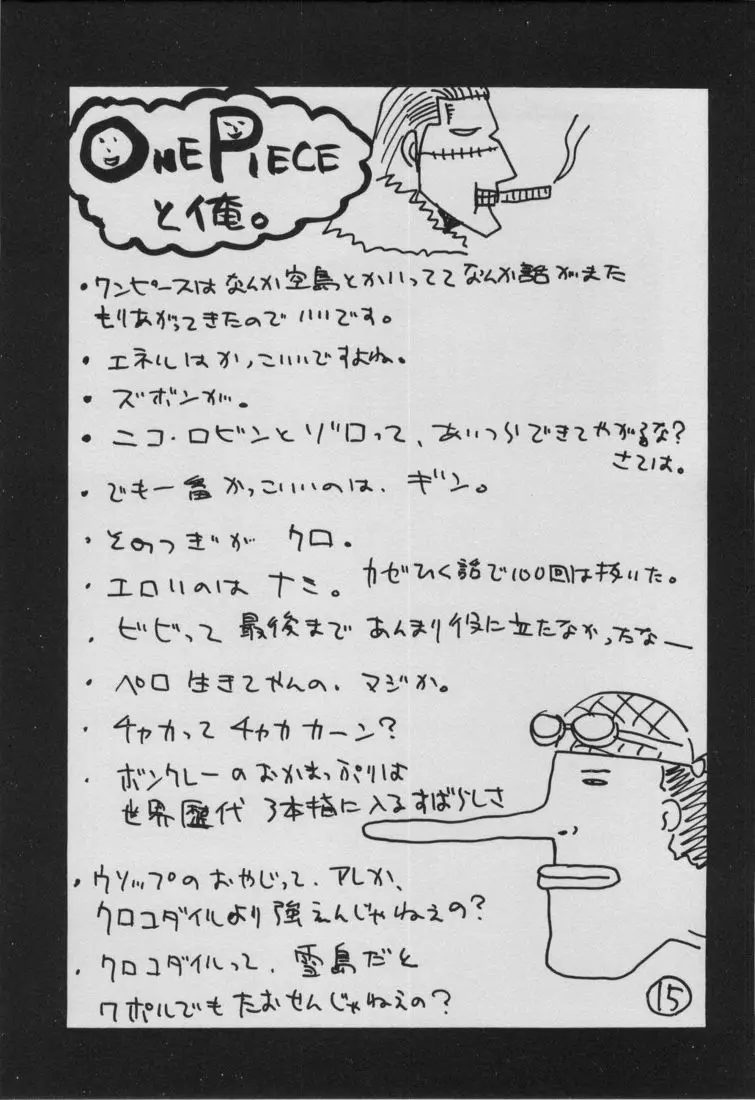 ONE PIECE
と俺。
・ワンピースはなんか空島とかいっててなんか話がまた
もりあがってきたのでいいです。
・エネルはかっこいいですよね。
・ズボンが。
・ニコ・ロビンとゾロって、あいつらできてやがるな?
さては。
・でも一番かっこいいのは、ギン。
・そのつぎが クロ。
・エロいのは ナミ。 カゼひく話で100回は抜いた。
・ビビって 最後まで あんまり役に立たなかったなー
・ペロ 生きてやんの、マジか。
・チャカって チャカ カーン?
・ボンクレーのおかまっぷりは
世界歴代 3本指に入るすばらしさ
・ウソップのおやじって、アレか、
クロコダイルより強えんじゃねえの?
・クロコダイルって、雪島だと
ワポルでもたおせんじゃねえの?
15